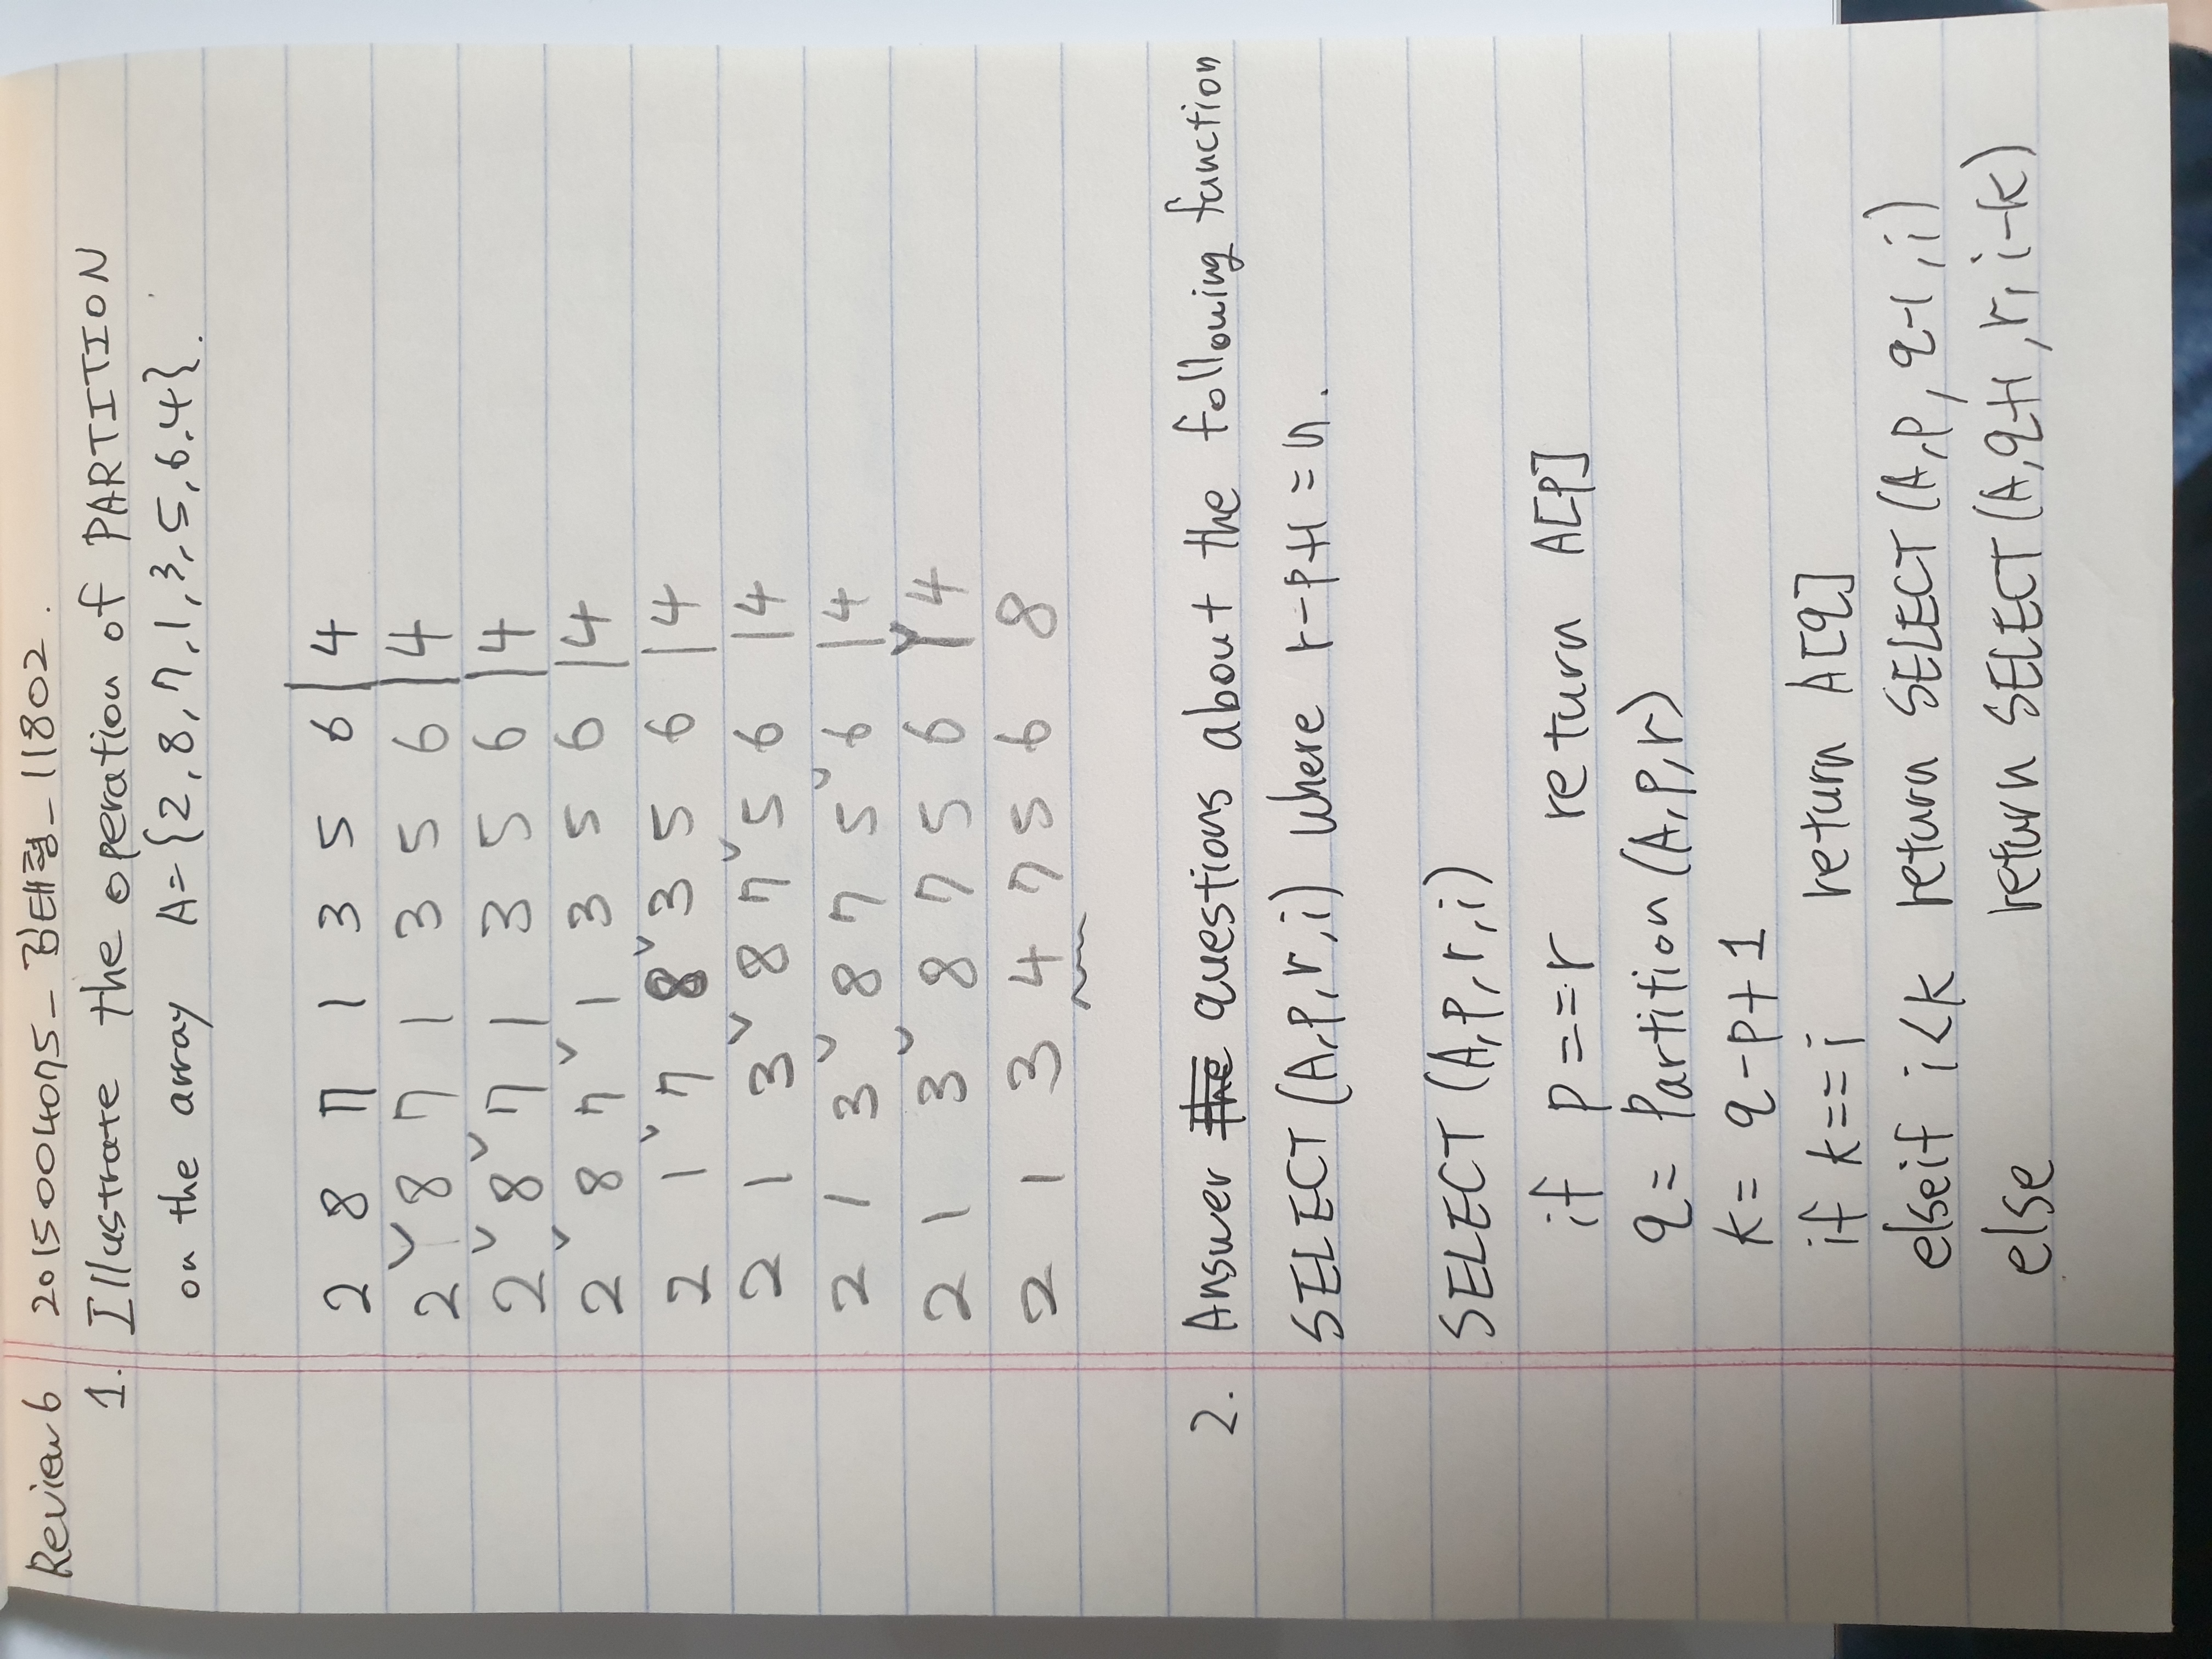 Review 6 2015004075-김태형-11802.
1. Illustrate the operation of PARTITION
on the array A={2,8,7,1,3,5,6,4}.
2 8 7 1 3 5 6 | 4
2 ˅ 8 7 1 3 5 6 | 4
2 ˅ 8 ˅ 7 1 3 5 6 | 4
2 ˅ 8 7 ˅ 1 3 5 6 | 4
2 1 ˅ 7 8 ˅ 3 5 6 | 4
2 1 3 ˅ 8 7 ˅ 5 6 | 4
2 1 3 ˅ 8 7 5 ˅ 6 | 4
2 1 3 ˅ 8 7 5 6 ˅| 4
2 1 3 4 7 5 6 8
2. Answer the questions about the following function
SELECT (A,p,r,i) where r-p+1=n.
SELECT (A,p,r,i)
if p==r return A[p]
q= Partition (A,p,r)
k= q-p+1
if k==i return A[q]
elseif i<k return SELECT (A,p,q-1,i)
else return SELECT (A,q+1,r,i-k)